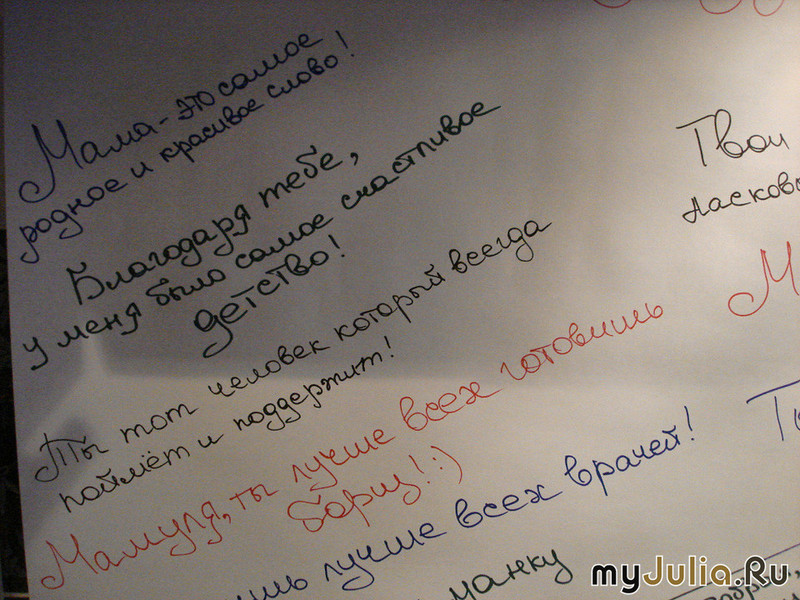 Мама - это самое
родное и красивое слово!
Благодаря тебе,
у меня было самое счастливое
детство!
Твои
ласковы
Ты тот человек который всегда
поймёт и поддержит!
Мамуля, ты лучше всех готовишь
борщ! :)
лучше всех врачей!
манку
myJulia.Ru